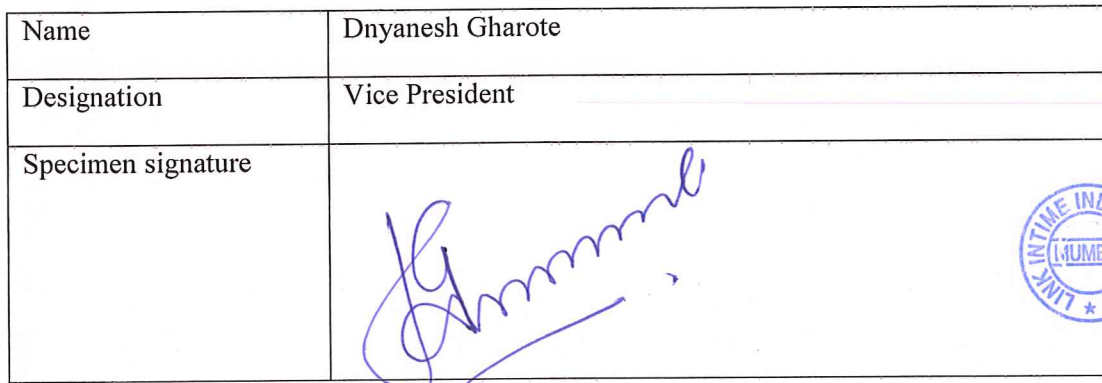 Name Dnyanesh Gharote
Designation Vice President
Specimen signature
LINK INTIME